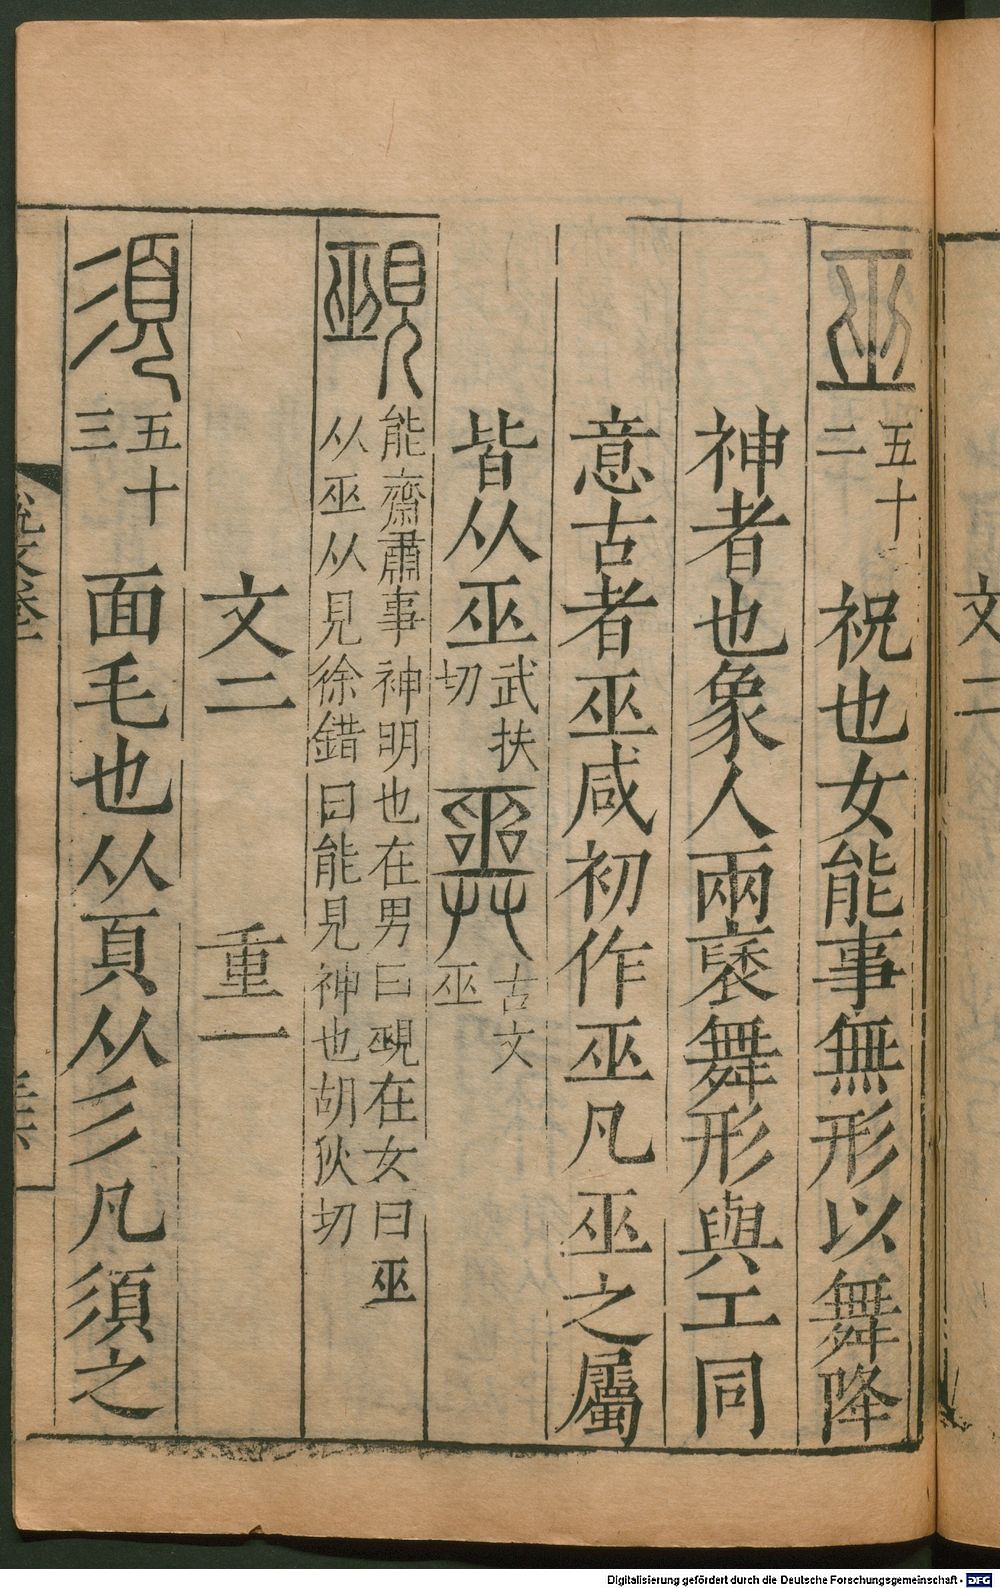 巫 五十二 祝也女能事無形以舞降
神者也象人兩褎舞形與工同
意古者巫咸初作巫凡巫之屬
皆从巫 武扶切 𢍮 古文巫
覡 能齋肅事神明也在男曰覡在女曰巫
从巫从見徐錯曰能見神也胡狄切
文二 重一
須 五十三 面毛也从頁从彡凡須之
文二
Digitalisierung gefördert durch die Deutsche Forschungsgemeinschaft - DFG